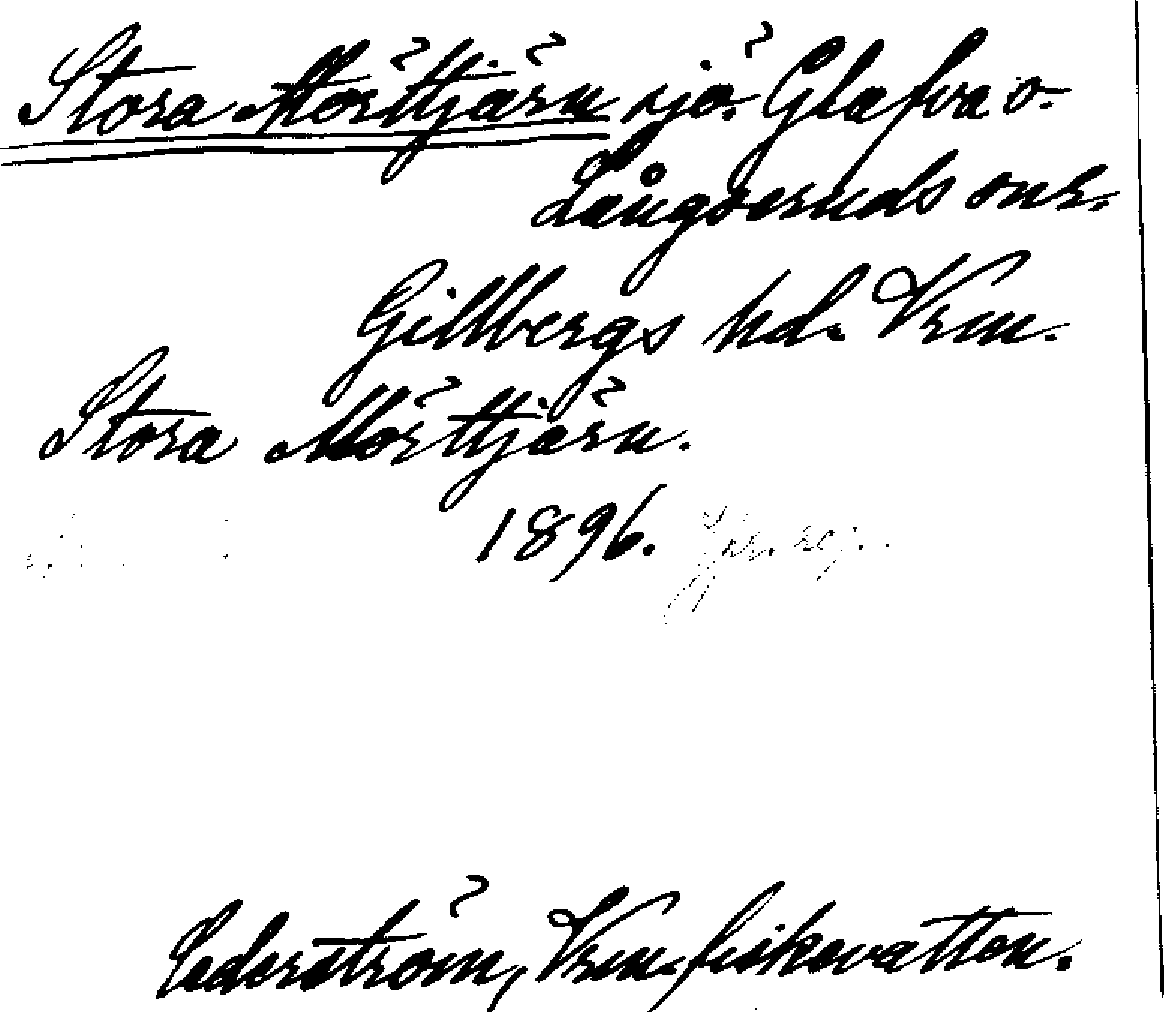 Stora Mörttjärn sjö. Glafva o.
Långseruds snr.
Gillbergs hd. Vrm.
Stora Mörttjärn.
1896.
Cederström, Vrm. fiskevatten.